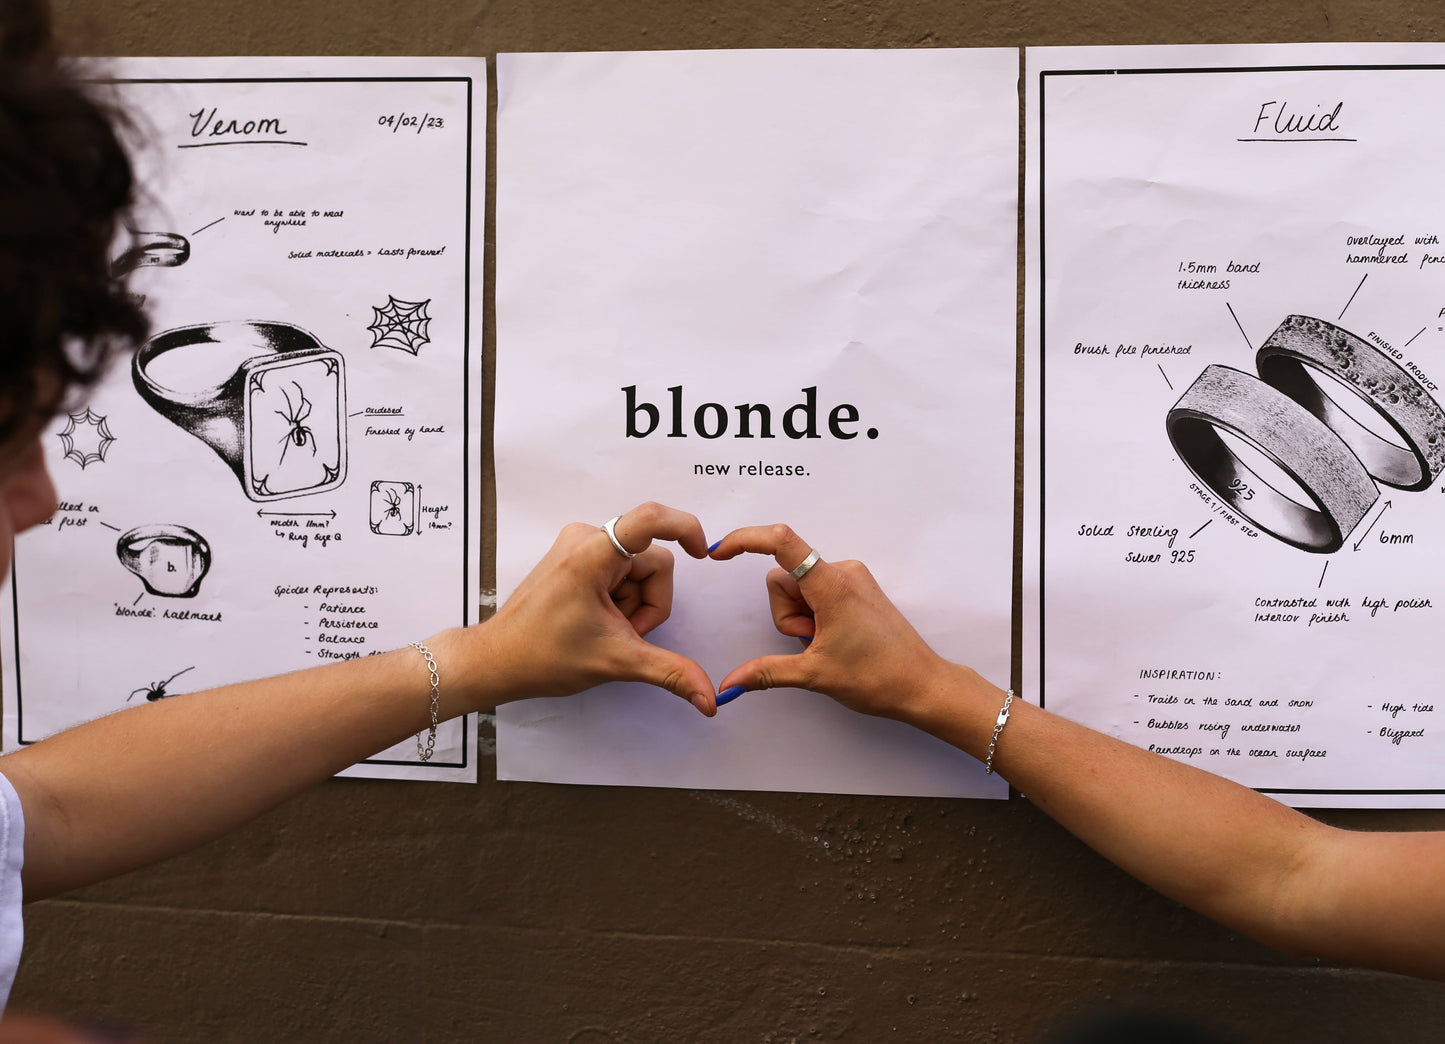 Venom
04/02/23
want to be able to wear
anywhere
Solid materials = Lasts forever!
oxidised
Finished by hand
Width 11mm?
Ring Size Q
Height
14mm?
b.
"blonde". hallmark
Spider Represents:
- Patience
- Persistence
- Balance
- Strength
blonde.
new release.
Fluid
Overlayed with
hammered
1.5mm band
thickness
Brush file finished
FINISHED PRODUCT
925
STAGE 1 / FIRST STEP
Solid Sterling
Silver 925
6mm
Contrasted with high polish
interior finish
INSPIRATION:
- Trails in the sand and snow
- Bubbles rising underwater
Raindrops on the ocean surface
- High tide
- Blizzard